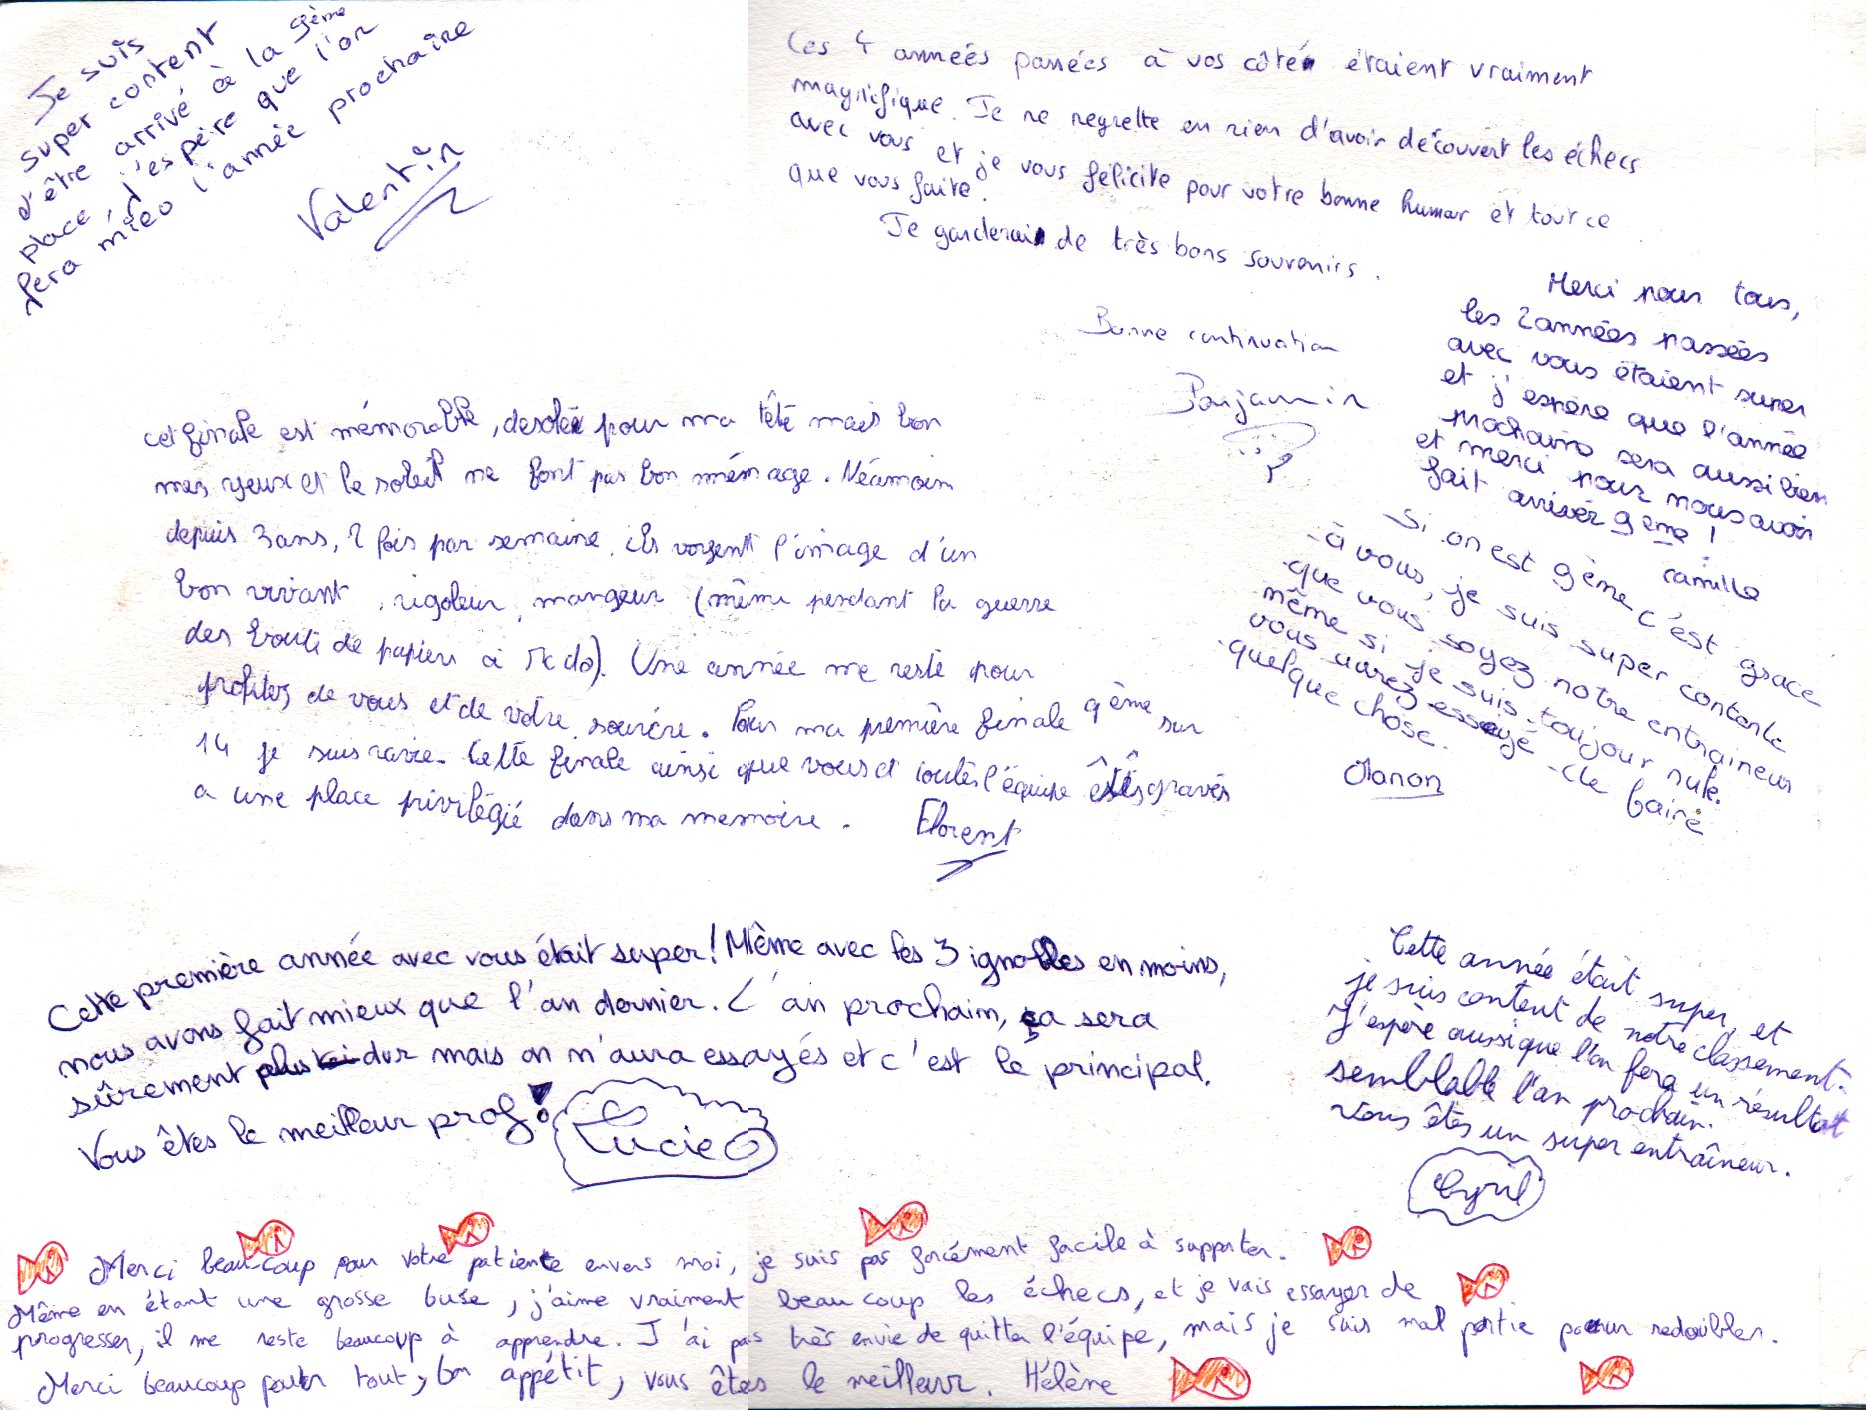 Je suis
super content
d'être arrivé à la 9ème
place, j'espère que l'on
fera mieo l'année prochaine
Valentin
Ces 4 années passées à vos côté étaient vraiment
magnifique. Je ne regrette en rien d'avoir découvert les échecs
avec vous et je vous félicite pour votre bonne humour et tout ce
que vous faite.
Je garderai de très bons souvenirs.
Bonne continuation
Benjamin
Merci pour tous,
les 2 années passées
avec vous étaient super
et j'espère que l'année
prochaine sera aussi bien
et merci pour nous avoir
fait arriver 9eme !
Camille
cet finale est mémorable, desolé pour ma tête mais bon
mes yeux et le soleil ne font pas bon ménage. Néanmoin
depuis 3 ans, 2 fois par semaine, ils voyent l'image d'un
bon vivant, rigoleur, mangeur (même pendant la guerre
des boule de papiers à Mc do). Une année me reste pour
profitez de vous et de votre sourire. Pour ma première finale 9ème sur
14 je suis ravie. Cette finale ainsi que vous et toutes l'équipe êtes gravés
a une place privilégié dans ma memoire. Florent
Si on est 9ème c'est grace
à vous, je suis super contente
que vous soyez notre entraineur
même si je suis toujour nule.
vous aurez essayé de faire
quelque chose.
Manon
Cette première année avec vous était super! Même avec les 3 ignobles en moins,
nous avons fait mieux que l'an dernier. L'an prochain, ça sera
sûrement plus dur mais on n'aura essayés et c'est le principal.
Vous êtes le meilleur prof!
Lucie
Cette année était super, et
je suis content de notre classement.
J'espère aussi que l'on fera un résultat
semblable l'an prochain.
Vous êtes un super entraîneur.
Cyril
Merci beaucoup pour votre patience envers moi, je suis pas forcément facile à supporter.
Même en étant une grosse buse, j'aime vraiment beaucoup les échecs, et je vais essayer de
progresser, il me reste beaucoup à apprendre. J'ai pas très envie de quitter l'équipe, mais je suis mal partie pour redoubler.
Merci beaucoup pour tout, bon appétit, vous êtes le meilleur. Hélène